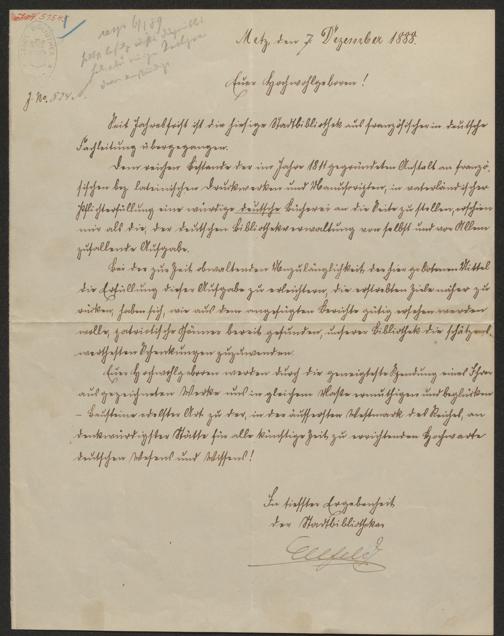 Metz, den 7. Dezember 1888.
Euer Hochwohlgeboren!
J. No. 534.
Seit Jahresfrist ist die hiesige Stadtbibliothek aus französischer in deutsche
Fachleitung übergegangen.
Dem reichen Bestande der im Jahre 1811 gegründeten Anstalt an franzö-
sischen bez. lateinischen Druckwerken und Manuskripten, in vaterländischer
Pflichterfüllung eine würdige deutsche Bücherei an die Seite zu stellen, erschien
mir als die, der deutschen Bibliothekverwaltung von selbst und vor Allem
zufallende Aufgabe.
Bei der zur Zeit obwaltenden Unzulänglichkeit der hier gebotenen Mittel
die Erfüllung dieser Aufgabe zu erleichtern, die erstrebten Ziele näher zu
rücken, haben sich, wie aus dem angefügten Berichte gütig ersehen werden
wolle, patriotische Gönner bereit gefunden, unserer Bibliothek die schätzens-
werthesten Schenkungen zuzuwenden.
Euer Hochwohlgeboren werden durch die geneigteste Spendung eines Ihrer
ausgezeichneten Werke uns in gleichem Maße ermuthigen und beglücken
– Bausteine edelster Art zu der, in der äussersten Westmark des Reiches, an
denkwürdigster Stätte für alle künftige Zeit zu errichtenden Hochwarte
deutschen Wesens und Wissens!
In tiefster Ergebenheit
der Stadtbibliothekar